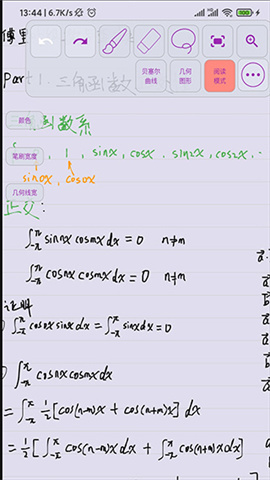 13:44 | 6.7K/s
100
傅里
贝塞尔曲线
几何图形
阅读模式
Part 1. 三角函数
颜色
函数系
笔刷宽度
, 1, sinx, cosx, sin2x, cos2x, ..
sin0x, cos0x
几何线宽
正交:
∫_{-π}^{π} sin nx cos mx dx = 0 n≠m
∫_{-π}^{π} cos nx cos mx dx = 0 n≠m
证明
∫_{-π}^{π} cos0x sinx dx = ∫_{-π}^{π} sinx dx = 0
∫_{-π}^{π} cos nx cos mx dx
= ∫_{-π}^{π} 1/2 [cos(n-m)x + cos(n+m)x] dx
= 1/2 [∫_{-π}^{π} cos(n-m)x dx + ∫_{-π}^{π} cos(n+m)x dx]